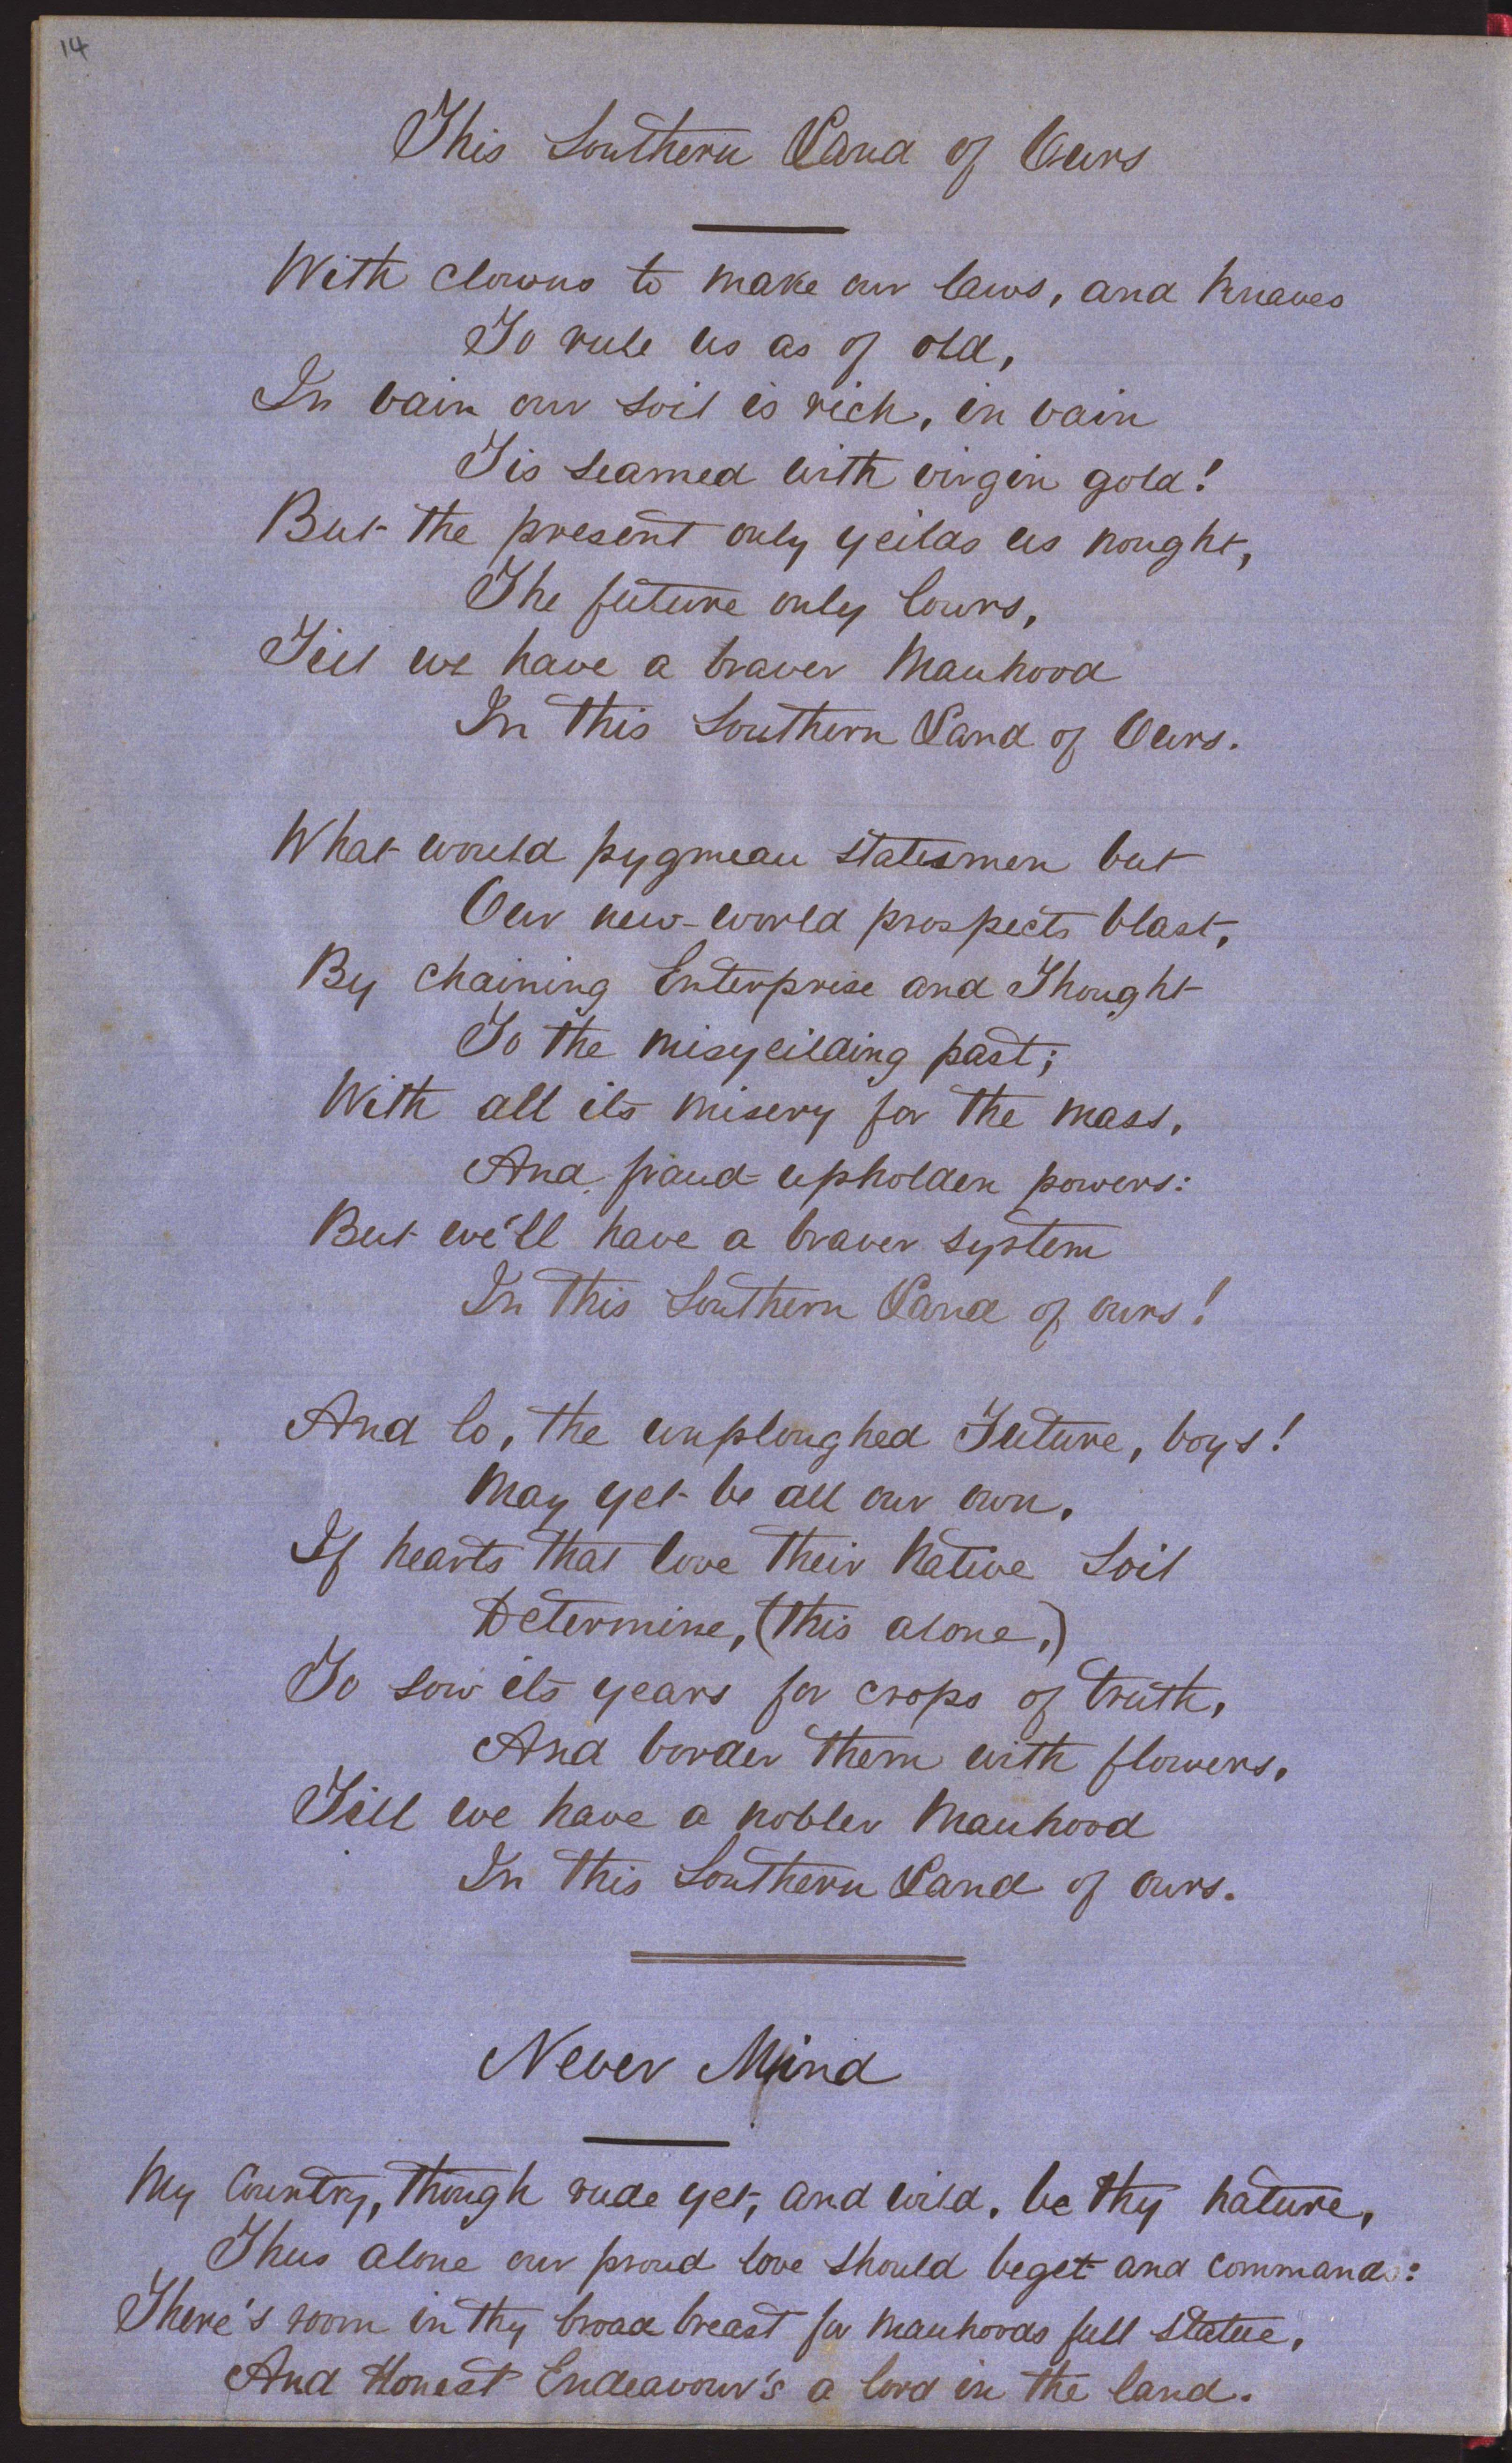 14
This Southern Land of Ours
With clowns to make our laws, and knaves
To rule us as of old,
In vain our soil is rich, in vain
Tis seamed with virgin gold!
But the present only yeilds us nought,
The future only lours,
Till we have a braver Manhood
In this Southern Land of Ours.
What would pygmean statesmen but
Our new-world prospects blast,
By chaining Enterprise and Thought
To the misyeilding past;
With all its misery for the mass,
And fraud-upholden powers:
But we'll have a braver system
In this Southern Land of ours!
And lo, the unploughed Future, boys!
May yet be all our own,
If hearts that love their Native Soil
Determine, (this alone,)
To sow its years for crops of truth,
And border them with flowers,
Till we have a nobler Manhood
In this Southern Land of ours.
Never Mind
My Country, though rude yet, and wild, be thy nature,
Thus alone our proud love should beget and command:
There's room in thy broad breast for Manhoods full statue,
And Honest Endeavour's a lord in the land.